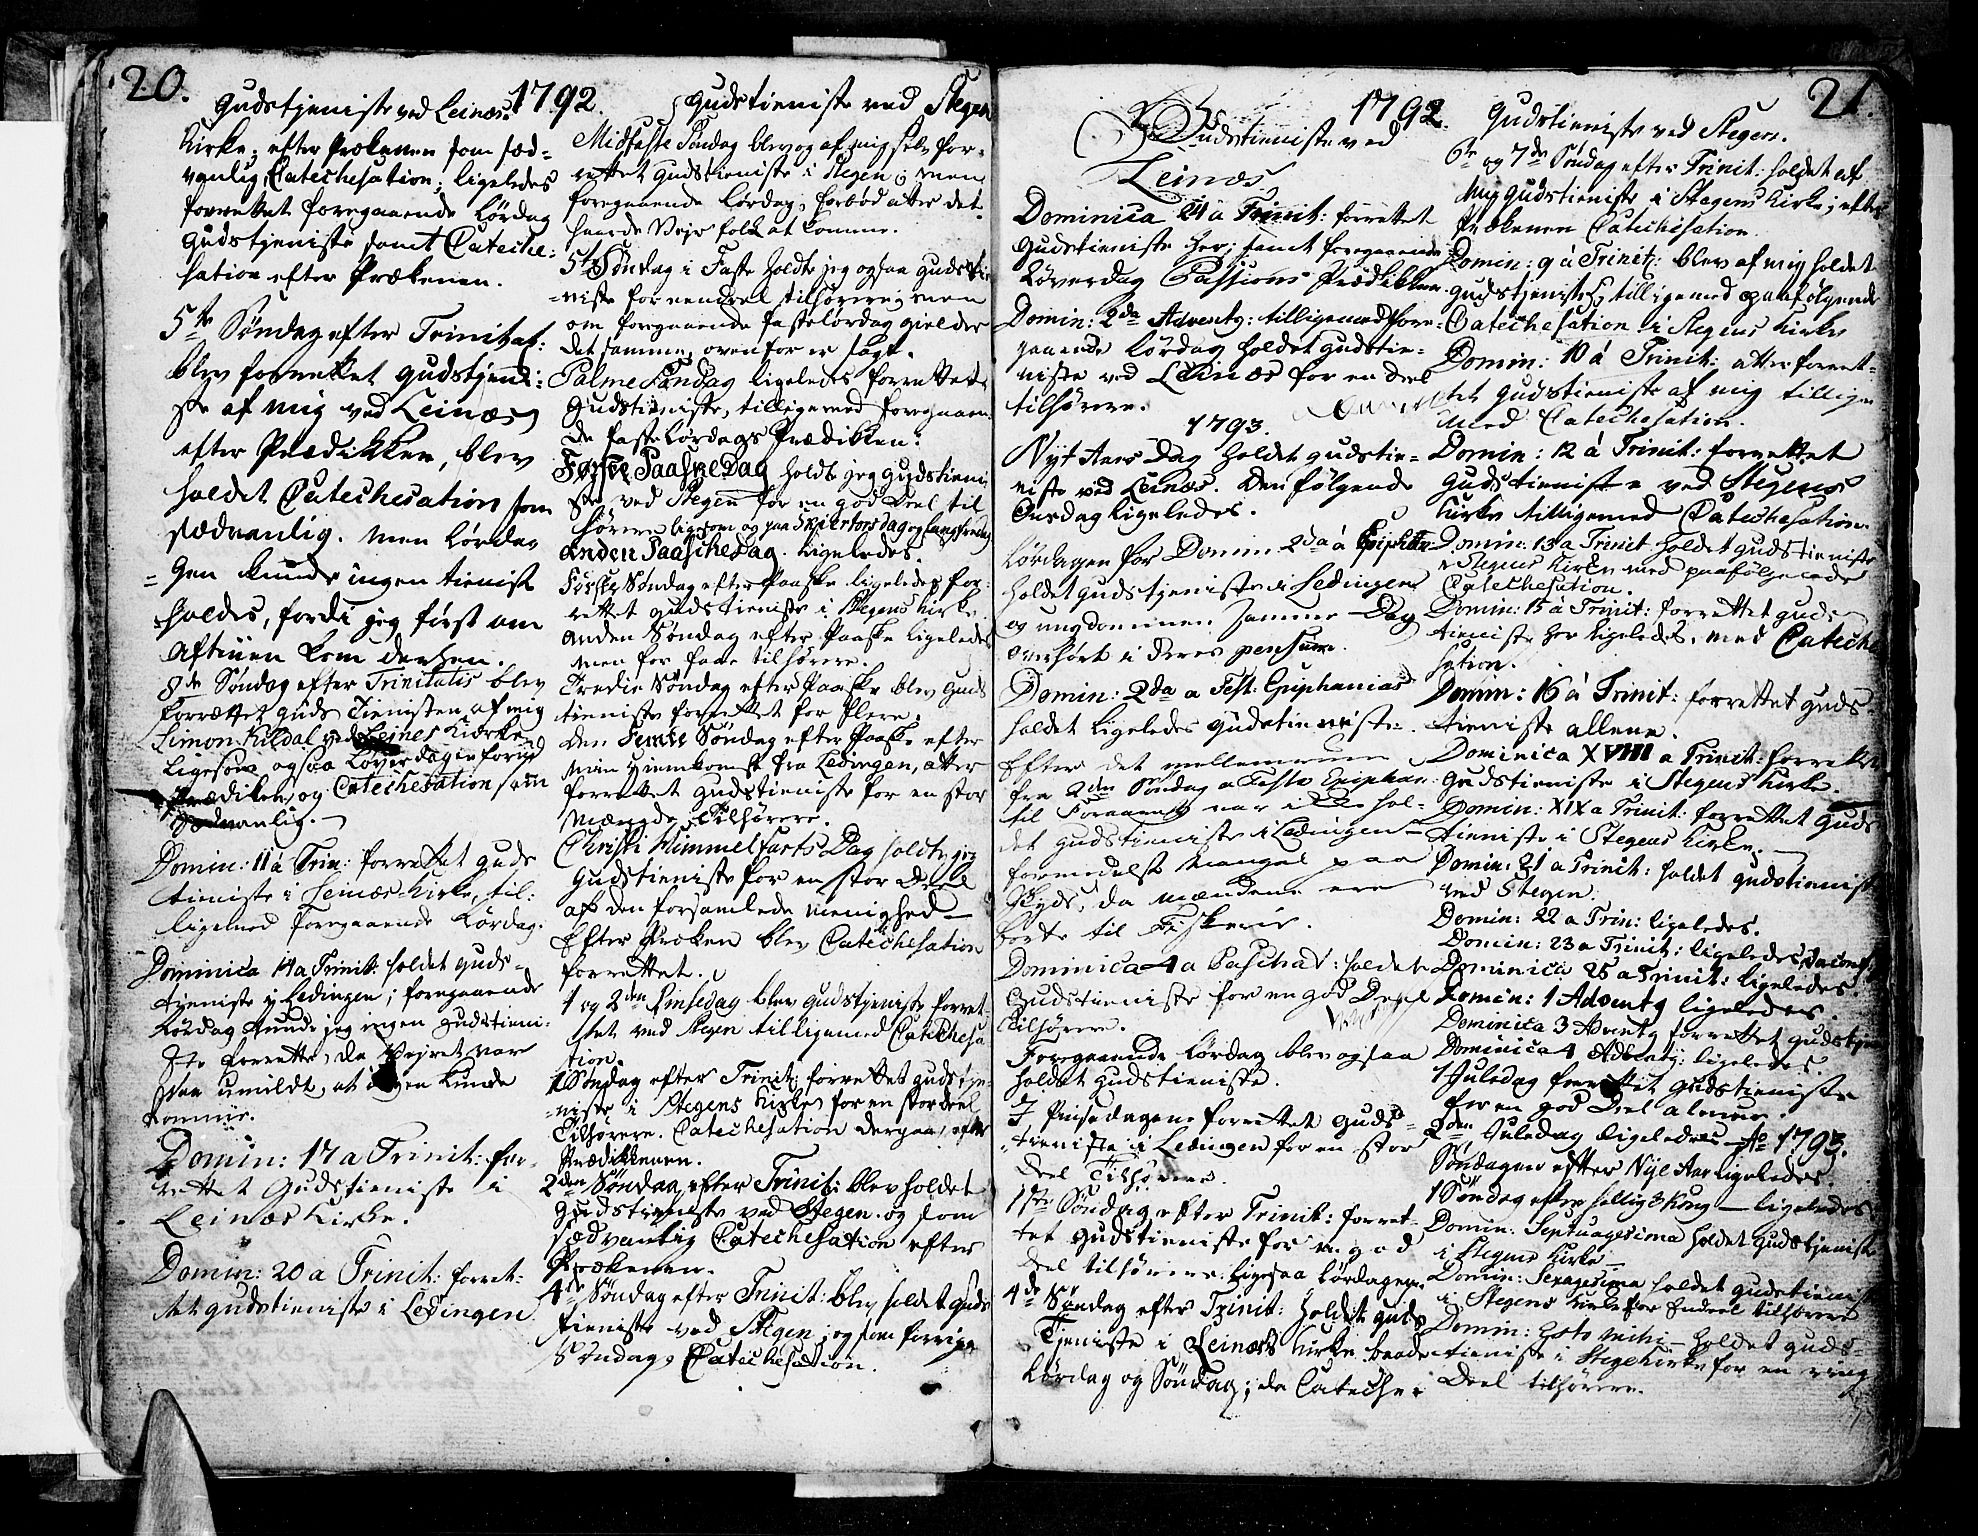 20.
1792.
Gudstjeniste ved Leinæs
Kirke; efter Prækenen som sæd-
vanlig Catechesation; ligeledes
forrettet foregaaende Lördag
Gudstjeniste samt Cateche-
sation efter Prækenen.
5te Söndag efter Trinitat:
blev forrettet Gudstjeni-
ste af mig ved Leinæs
efter Prædikken, blev
holdet Catechesation som
sædvanlig. Men Lördag
-gen kunde ingen tieniste
holdes, fordi jeg först om
Aftinen kom derhen.
8de Söndag efter Trinitatis blev
forrættet Guds Tienisten af mig
Simon Kildal ved Leines Kirke
ligesom ogsaa Löverdagen forud
Prædiken og Catechesation som
Sædvanlig.
Domin: 11 a Trin: forrettet Guds
tieniste i Leinæs Kirke, til-
ligemed foregaaende Lördag.
Dominica 14 a Trinit: holdet Guds-
tjeniste y Ledingen; foregaaende
Lördag kunde jeg ingen Gudstieni-
ste forrette, da Vejret var
saa umildt, at ingen kunde
komme.
Domin: 17 a Trinit: for-
rettet Gudstieniste i
Leinæs Kirke.
Domin: 20 a Trinit: forret-
tet Gudstieniste i Ledingen
Gudstieniste ved Stegen
Midfaste Söndag blev og af mig selv for-
rettet Gudstieniste i Stegen; men
foregaaende Lördag, forböd atter det
haarde Vejr folk at komme.
5te Söndag i Faste holdt jeg ogsaa Gudstie-
-niste for en deel tilhörere; men
om foregaaende fastelördag gielder
det samme, ovenfor er sagt.
Palme Söndag ligeledes forrettet
Gudstieniste, tilligemed foregaaen-
de faste Lördags Prædikken:
Første Paaske Dag holdt jeg Gudstieni
ste ved Stegen for en god Deel til
hörere ligesom og paa Skiertorsdag og Langfredag
Anden Paasche Dag. ligeledes.
Förste Söndag efter Paaske ligeledes for-
rettet Gudstieniste i Stegens Kirke
Anden Söndag efter Paaske ligeledes
men for faae tilhörere.
Tredie Söndag efter Paaske blev Guds
tieniste forrettet for flere.
Den Femte Söndag efter Paaske efter
min Hiemkomst fra Ledingen, atter
forrettet Gudstieniste for en stor
Mængde Tilhörere.
Christi Himmelfarts Dag holdt jeg
Gudstieniste for en stor Deel
af den forsamlede Menighed
Efter Præken blev Catechesation
forrettet.
1 og 2den Pinsedag blev Gudstjeniste forret-
tet ved Stegen tilligemed Catechesa
tion.
1 Söndag efter Trinit: forrettet Gudstie-
-niste i Stegens Kirke for en stor deel
Tilhörere. Catechesation derpaa efter
Prædikkenen.
2den Söndag efter Trinit: blev holdet
Gudstieniste ved Stegen og som
sædvanlig Catechesation efter
Prækenen.
4de Söndag efter Trinit: blev holdet Guds
tieniste ved Stegen; og som forrige
Söndag, Catechesation.
21.
1792.
Gudstieniste ved
Leinæs
Dominica 24 a Trinit: forrettet
Gudstieniste her; samt foregaaende
Löverdag Passions Prædikken.
Domin: 2da Advent: tilligemed fore-
gaaende Lördag holdet Gudstie-
niste ved Leinæs for en deel
tilhörere.
1793.
Nyt Aars Dag holdet Gudstie-
niste ved Leinæs. Den fölgende
Onsdag ligeledes.
Lördagen for Domin 2da a Epiphan
holdet Gudstjeniste i Ledingen
og ungdommen samme Dag
overhört i deres pensum.
Domin: 2da a Fest: Epiphanias
holdet ligeledes Gudstieniste.
Efter det mellemrum
fra 2den Söndag a Festo Epiphan:
til Foraaret var ikke hol-
det Gudstieniste i Ledingen
formedelst Mangel paa
Skyds, da Mændene ere
borte til Fiskerie.
Dominica 4 a Pascha: holdet
Gudstieniste for en god Deel
Tilhörere.
Foregaaende Lördag blev ogsaa
holdet Gudstieniste.
Pinsedagene forrettet Guds-
tieniste i Ledingen for en stor
Deel Tilhörere.
1ste Söndag efter Trinit: forret-
tet Gudstieniste for en god
Deel tilhörere. ligesaa Lördagen.
4de Söndag efter Trinit: holdet Guds
Tjeniste i Leinæs Kirke baade
Lördag og Söndag; da Cateche:
Gudstieniste ved Stegen.
6te og 7de Söndag efter Trinit: holdet af
Mig Gudstieniste i Stegens Kirke; efter
Prækenen Catechesation.
Domin: 9 a Trinit: blev af mig holdet
Gudstjeniste tilligemed paafölgende
Catechesation i Stegens Kirke
Domin: 10 á Trinit: atter forret-
tet Gudstieniste af mig tillige
med Catechesation.
Domin: 12 á Trinit: forrettet
Gudstieniste ved Stegens
Kirke tilligemed Catechesation
Domin: 13 a Trinit holdet Gudstieniste
i Stegens Kirke med paafölgende
Catechesation.
Domin: 15 á Trinit: forrettet Guds
tieniste her ligeledes, med Cateche
sation.
Domin: 16 á Trinit: forrettet Guds-
tieniste allene.
Dominica XVIII a Trinit: forrettet
Gudstieniste i Stegens Kirke.
Domin: XIX a Trinit: forrettet Guds
tieniste i Stegens Kirke.
Domin: 21 a Trinit: holdet Gudstieniste
ved Stegen.
Domin: 22 a Trin: ligeledes.
Domin: 23 a Trinit: ligeledes
Dominica 25 a Trinit: ligeledes.
Domin: 1 Advent ligeledes.
Dominica 3 Advent forrettet Gudstjen
Dominica 4 Advent: ligeledes.
1 Juledag forrettet Gudstieniste
for en god Deel Almue.
2den Juledag ligeledes Ao 1793.
Söndagen efter Nyt Aar ligeledes.
1 Söndag efter hellig 3 Kong ligeledes
Domin: Septuagesima holdet Gudstjeniste
i Stegens Kirke
Domin: Sexagesima holdet Gudstieniste
i Stegens Kirke for Endeel tilhörere
Domin: Esto mihi holdet Guds-
tieniste i Stegs Kirke for en ring
Deel tilhörere.